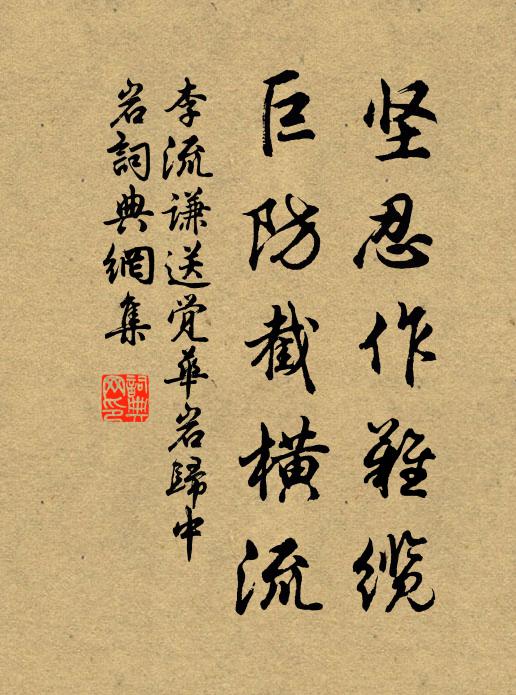 坚忍作难缆
巨防截横流
李流谦送觉华岩归中
岩詞典網集
詞典网印